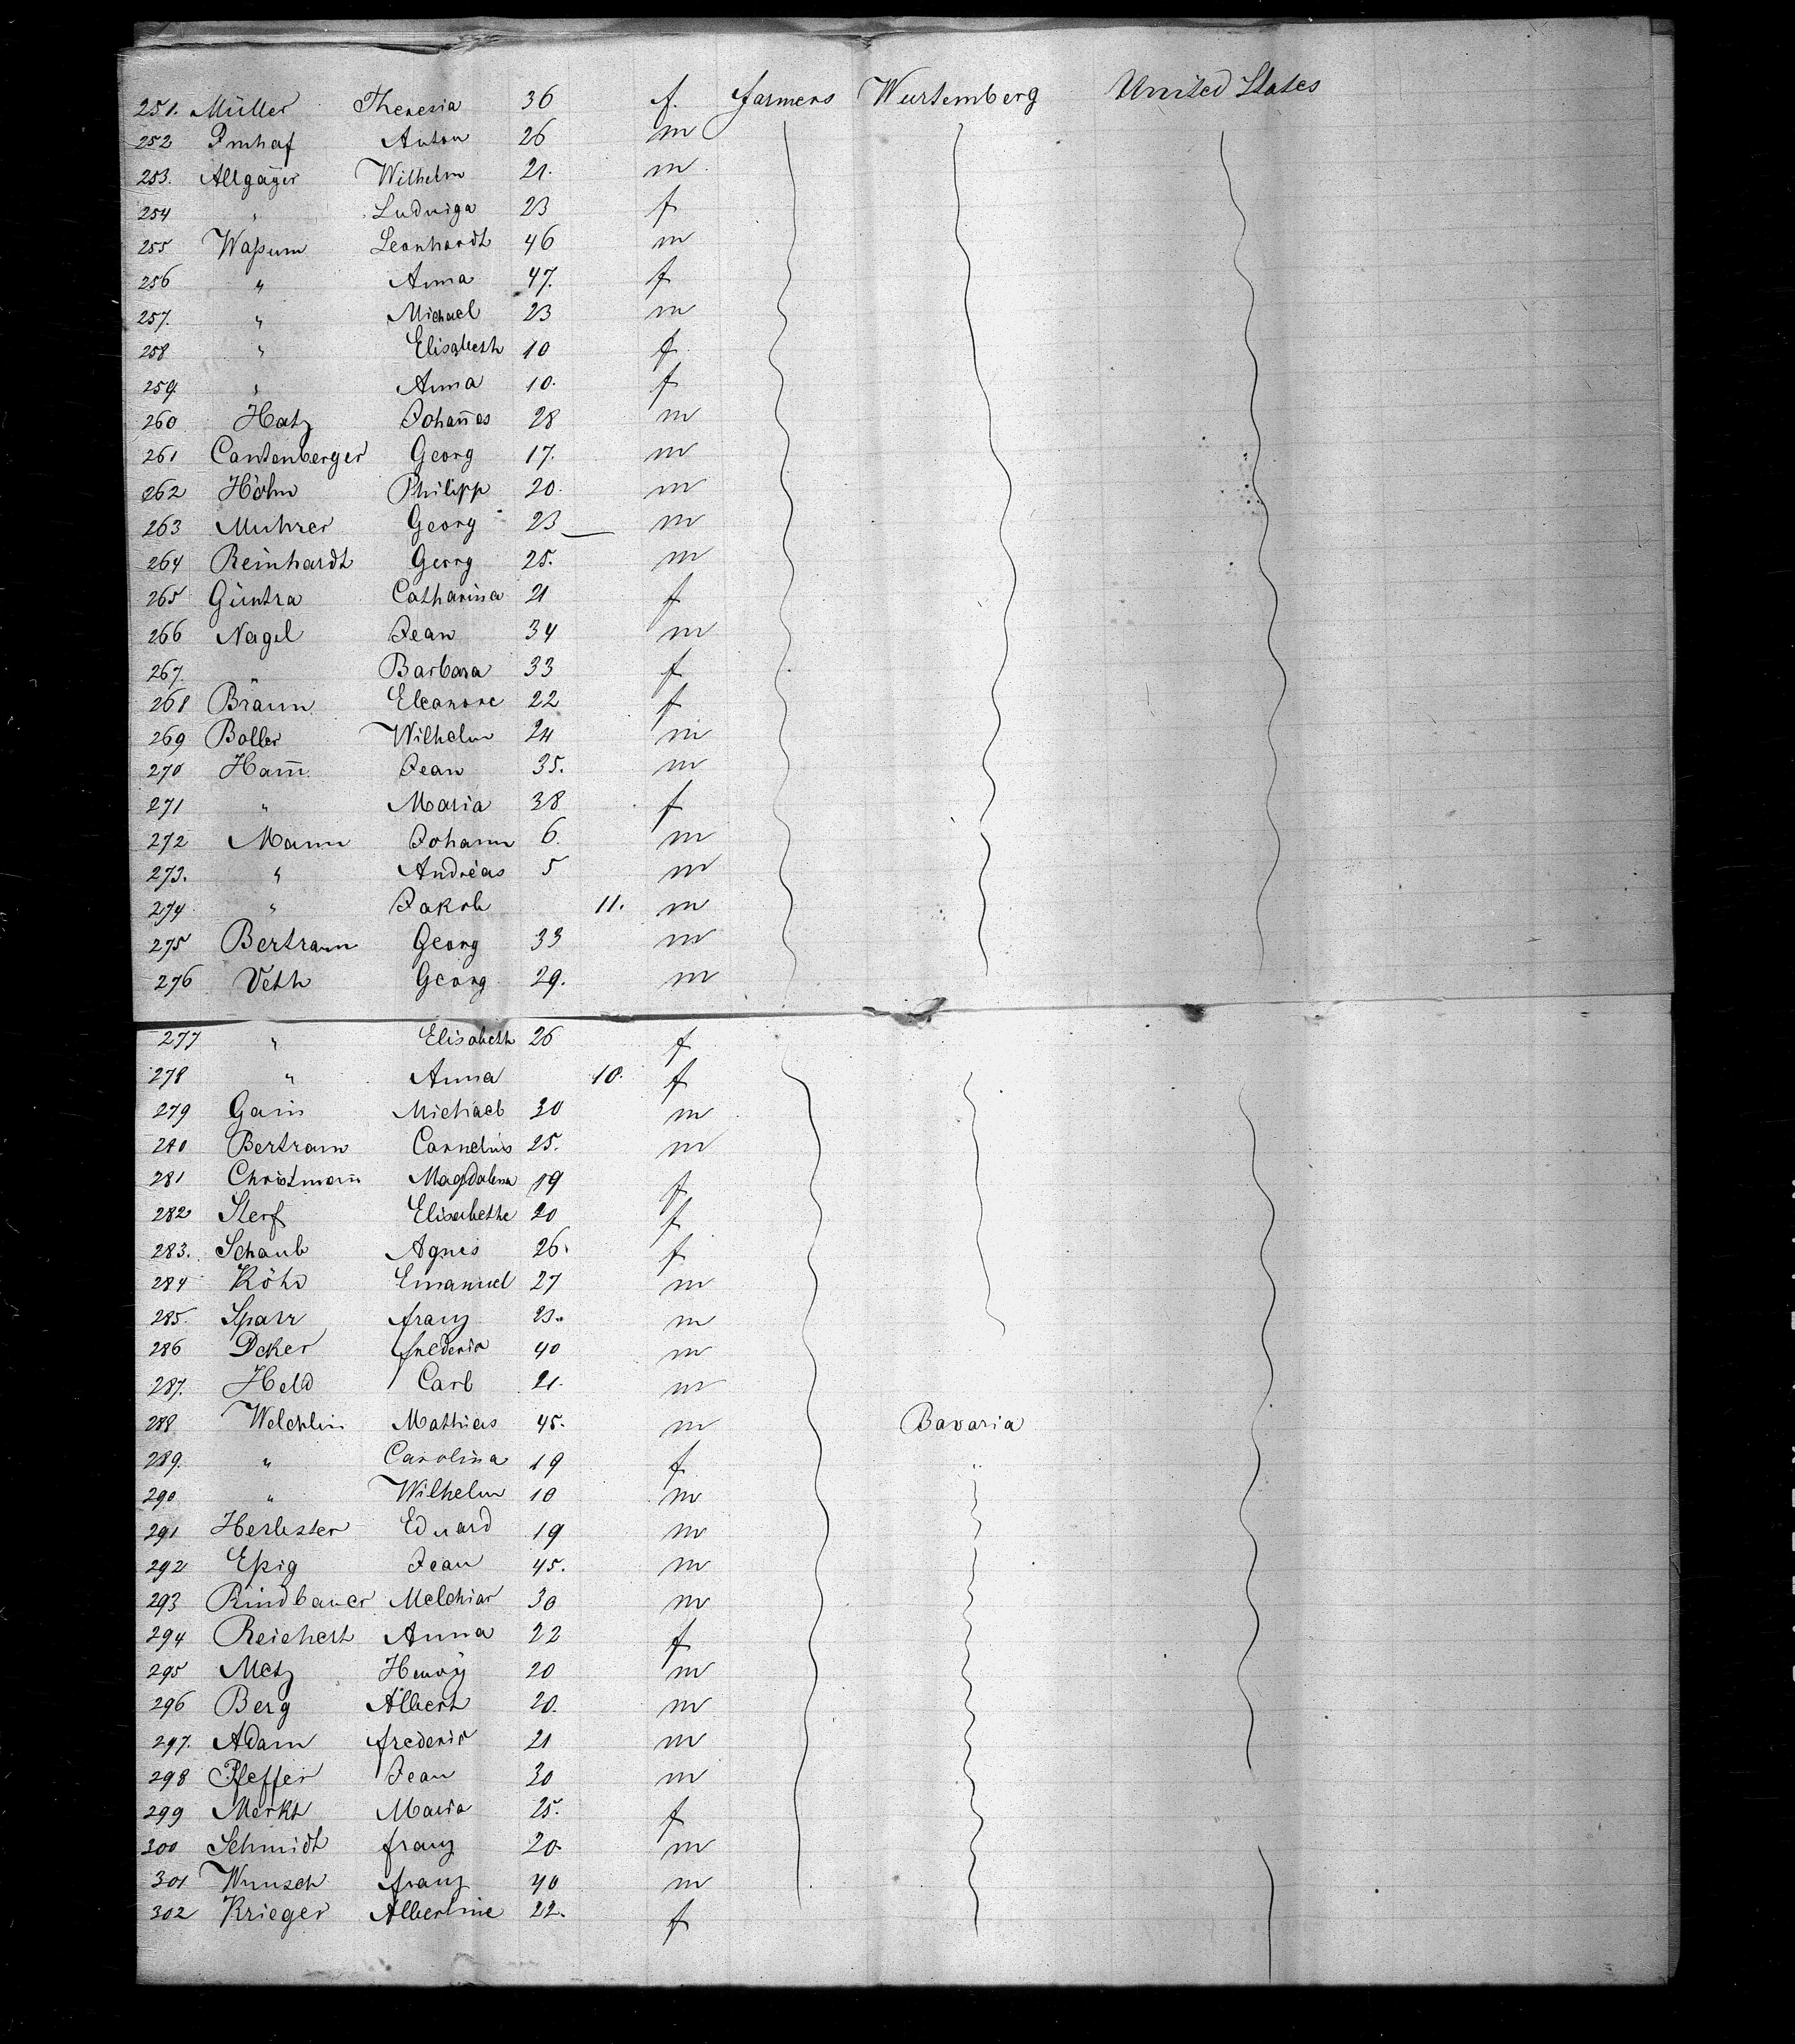 251. Müller Theresia 36 f. farmers Wurtemberg United States
252 Imhaf Anton 26 m
253. Allgaÿer Wilhelm 21. m
254 " Ludwiga 23 f
255 Waßum Leonhardt 46 m
256 " Anna 47. f
257. " Michael 23 m
258 " Elisabeth 10 f
259 " Anna 10. f
260 Hatz Johañes 28 m
261 Cantenberger Georg 17. m
262 Höhn Philipp 20. m
263 Muhrer Georg 23 — m
264 Reinhardt Georg 25. m
265 Güntra Catharina 21 f
266 Nagel Jean 34 m
267. " Barbara 33 f
268 Braun Eleanore 22 f
269 Boller Wilhelm 24 m
270 Ham̄ Jean 35. m
271 " Maria 38 f
272 Mann Johann 6. m
273. " Andreas 5 m
274 " Jakob 11. m
275 Bertram Georg 33 m
276 Veth Georg 29. m
277 " Elisabeth 26 f
278 " Anna 10. f
279 Michael 30 m
280 Bertram Cornelius 25. m
281 Christmañ Magdalena 19 f
282 Sterf Elisabethe 20 f
283. Schaub Agnes 26. f
284 Köhr Emanuel 27 m
285. Sparr franz 23. m
286 Deker frederik 40 m
287. Held Carl 21. m
288 Welchlin Mathias 45. m Bavaria
289. " Carolina 19 f "
290 " Wilhelm 10 m
291 Herbster Eduard 19 m
292 Eßig Jean 45. m
293 Rindbauer Melchior 30 m
294 Reichert Anna 22 f
295 Metz Henrÿ 20 m
296 Berg Albert 20. m
297. Adam frederik 21 m
298 Pfeffer Jean 30 m
299 Merkt Maria 25. f
300 Schmidt franz 20 m
301 Wunsch franz 40 m
302 Krieger Albertine 22. f